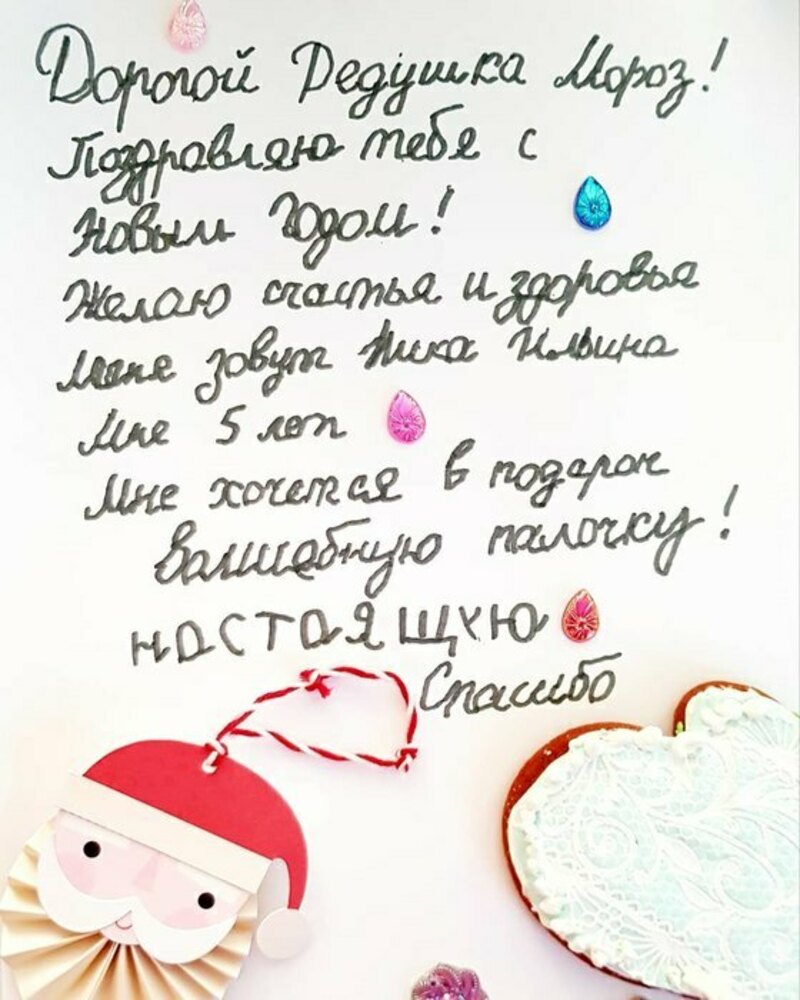 Дорогой Дедушка Мороз!
Поздравляю тебя с
Новым Годом!
Желаю счастья и здоровья
Меня зовут Ника Ильина
Мне 5 лет
Мне хочется в подарок
Волшебную палочку!
настоящую
Спасибо